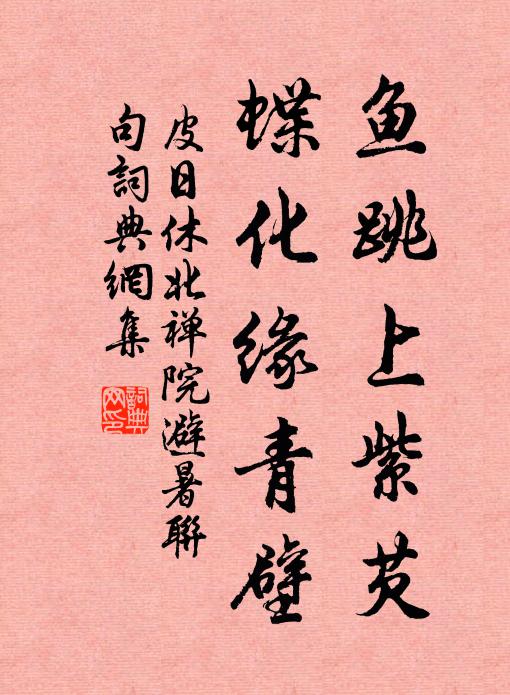 鱼跳上紫芡
蝶化缘青壁
皮日休北禅院避暑聯
句詞典網集
詞典网印